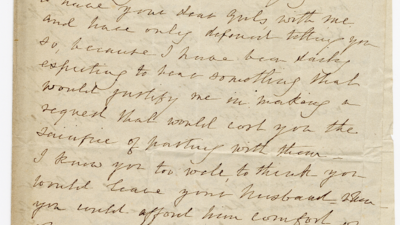 to have your dear Girls with me
and have only deferred telling you
so, because I have been daily
expecting to hear something that
would justify me in making a
request that would cost you the
sacrifice of parting with them—
I know you too well to think you
would leave your husband when
you could afford him comfort or